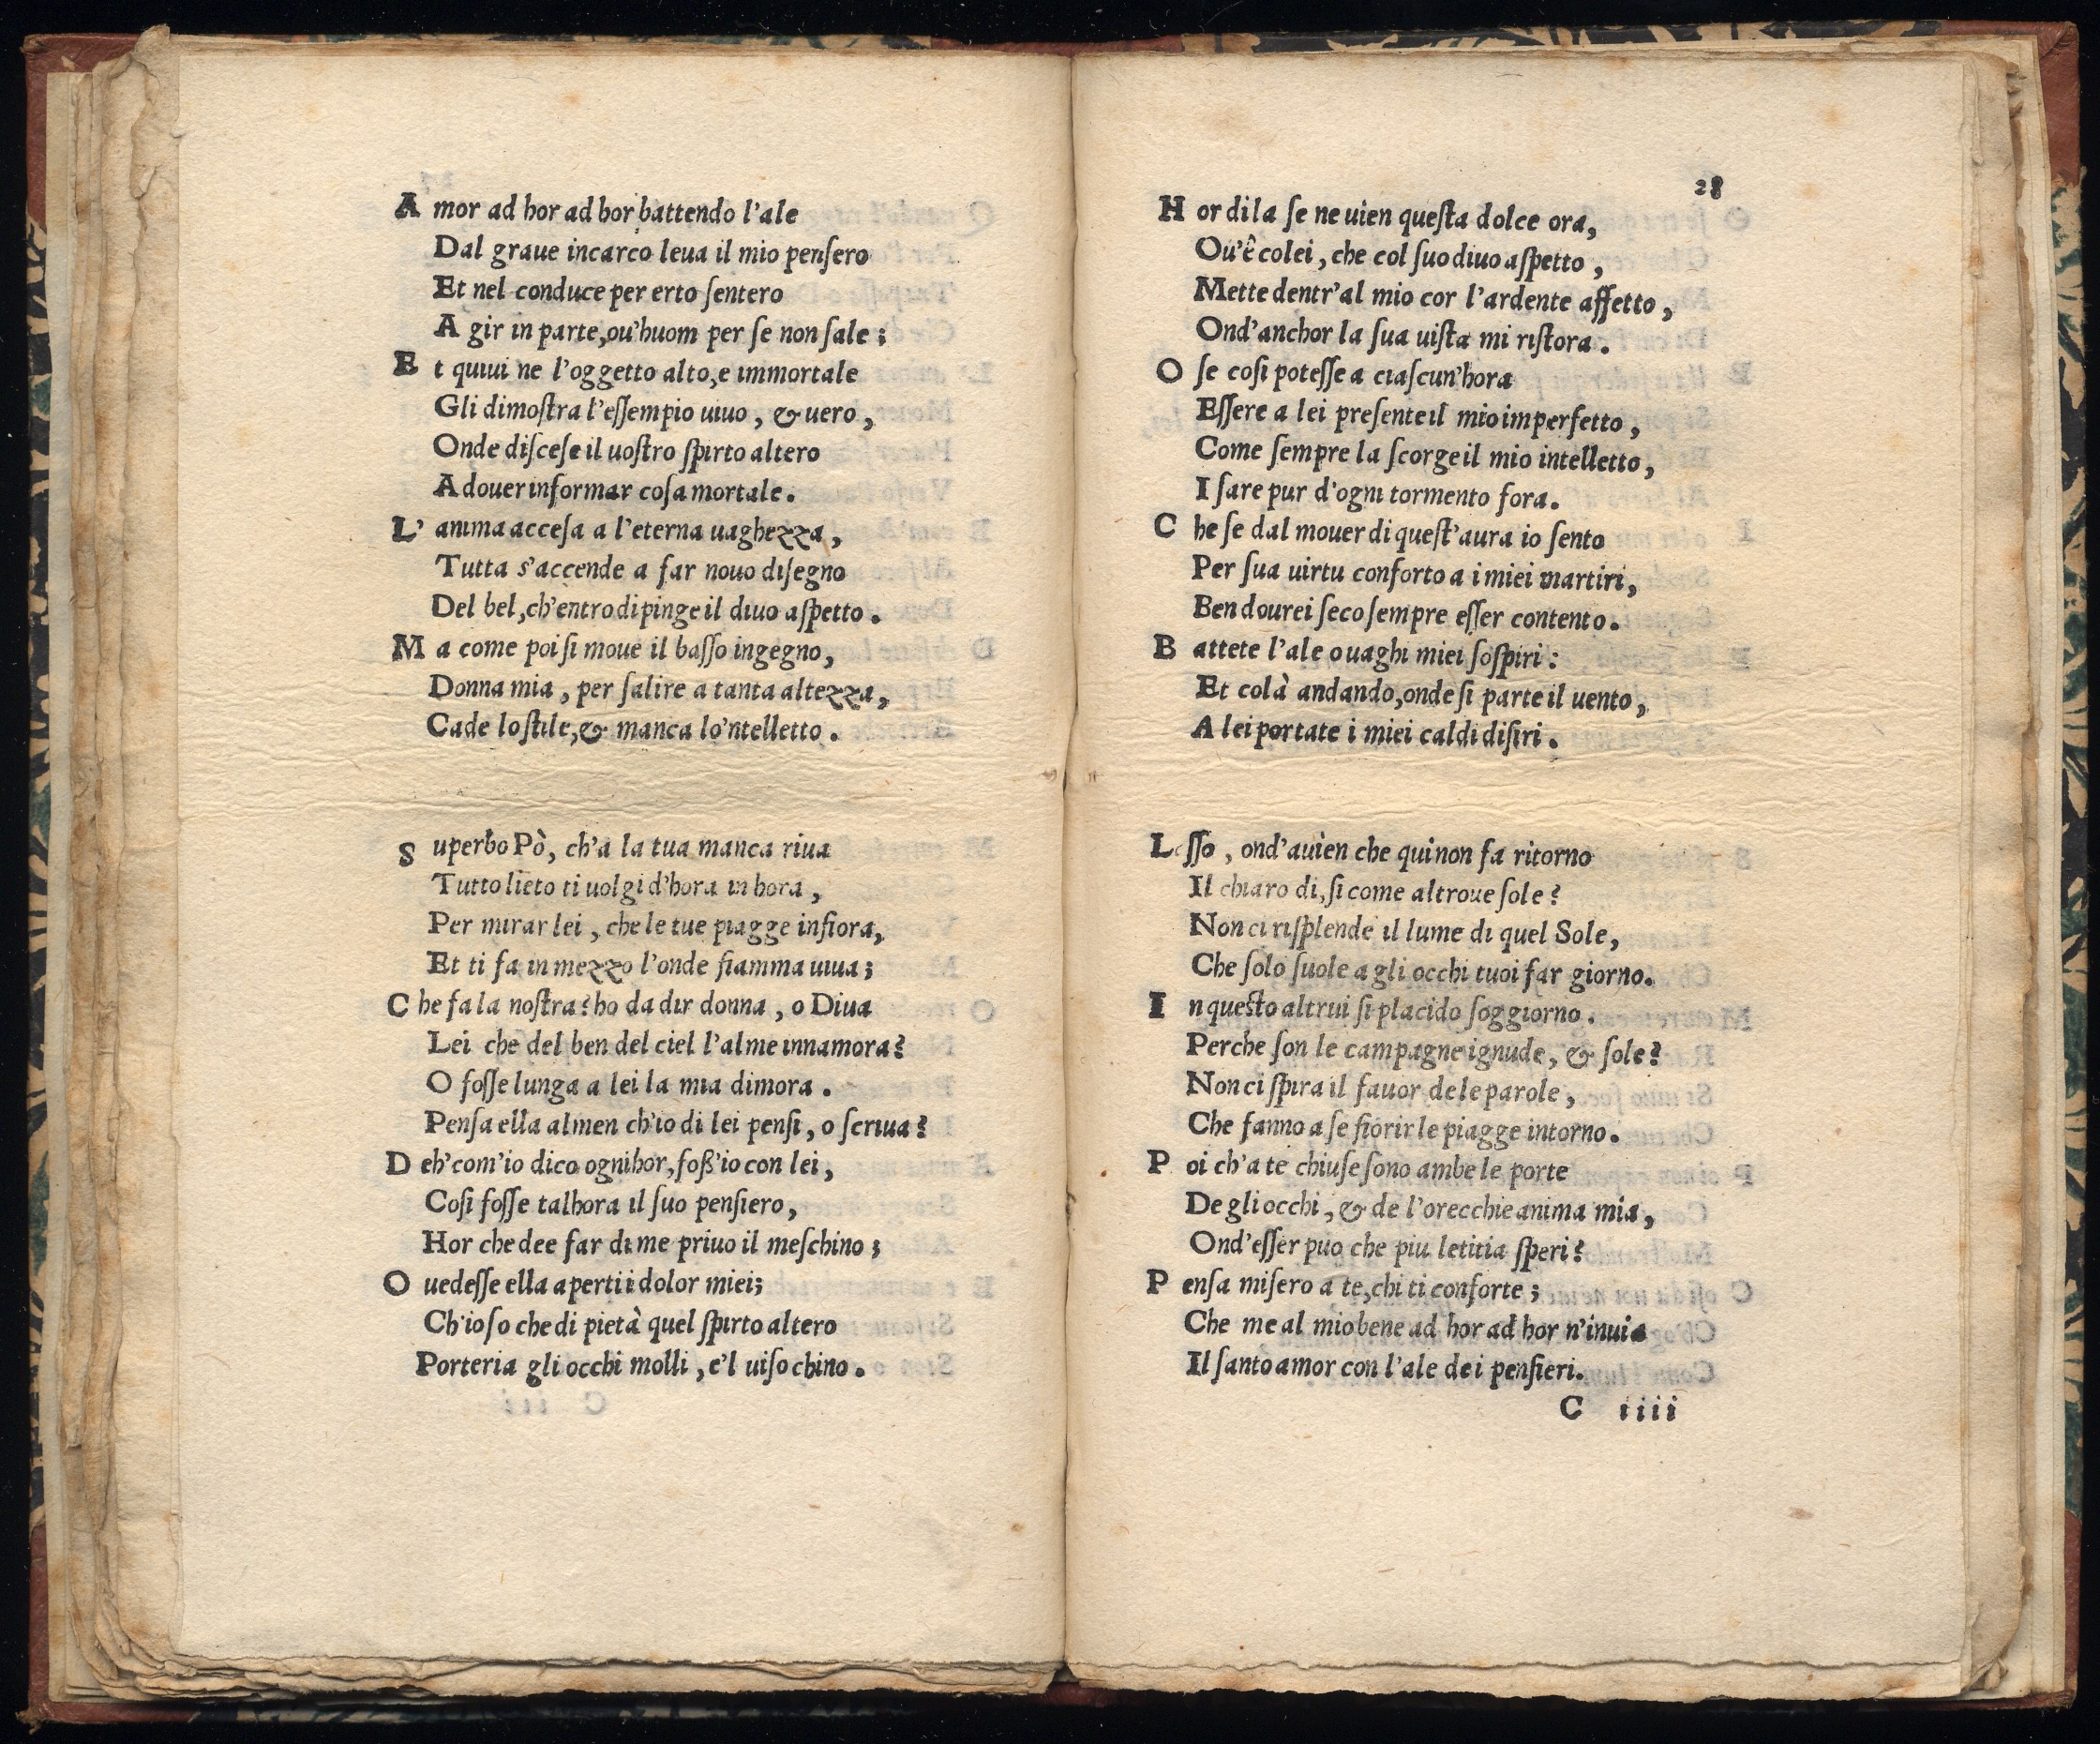 Amor ad hor ad hor battendo l'ale
Dal graue incarco leua il mio penſero
Et nel conduce per erto ſentero
A gir in parte, ou'huom per ſe non ſale;
Et quiui ne l'oggetto alto, e immortale
Gli dimoſtra l'eſſempio uiuo, & uero,
Onde diſceſe il uoſtro ſpirto altero
A douer informar coſa mortale.
L'anima acceſa a l'eterna uaghezza,
Tutta s'accende a far nouo diſegno
Del bel, ch'entro dipinge il diuo aſpetto.
Ma come poi ſi moue il baſſo ingegno,
Donna mia, per ſalire a tanta altezza,
Cade lo ſtile, & manca lo'ntelletto.
Superbo Pò, ch'a la tua manca riua
Tutto lieto ti uolgi d'hora in hora,
Per mirar lei, che le tue piagge infiora,
Et ti fa in mezzo l'onde fiamma uiua;
Che fa la noſtra? ho da dir donna, o Diua
Lei che del ben del ciel l'alme innamora?
O foſſe lunga a lei la mia dimora.
Penſa ella almen ch'io di lei penſi, o ſcriua?
Deh'com'io dico ognihor, foß'io con lei,
Coſi foſſe talhora il ſuo penſiero,
Hor che dee far di me priuo il meſchino;
O uedeſſe ella aperti i dolor miei;
Ch'io ſo che di pietà quel ſpirto altero
Porteria gli occhi molli, e'l uiſo chino.
28
Hor di la ſe ne uien queſta dolce ora,
Ou'è colei, che col ſuo diuo aſpetto,
Mette dentr'al mio cor l'ardente affetto,
Ond'anchor la ſua uiſta mi riſtora.
O ſe coſi poteſſe a ciaſcun'hora
Eſſere a lei preſente il mio imperfetto,
Come ſempre la ſcorge il mio intelletto,
I ſare pur d'ogni tormento fora.
Che ſe dal mouer di queſt'aura io ſento
Per ſua uirtu conforto a i miei martiri,
Ben dourei ſeco ſempre eſſer contento.
Battete l'ale o uaghi miei ſoſpiri:
Et colà andando, onde ſi parte il uento,
A lei portate i miei caldi diſiri.
Laſſo, ond'auien che qui non fa ritorno
Il chiaro di, ſi come altroue ſole?
Non ci riſplende il lume di quel Sole,
Che ſolo ſuole a gli occhi tuoi far giorno.
In queſto altrui ſi placido ſoggiorno.
Perche ſon le campagne ignude, & ſole?
Non ci ſpira il fauor de le parole,
Che fanno a ſe fiorir le piagge intorno.
Poi ch'a te chiuſe ſono ambe le porte
De gli occhi, & de l'orecchie anima mia,
Ond'eſſer puo che piu letitia ſperi?
Penſa miſero a te, chi ti conforte;
Che me al mio bene ad hor ad hor n'inuia
Il ſanto amor con l'ale de i penſieri.
C iiii